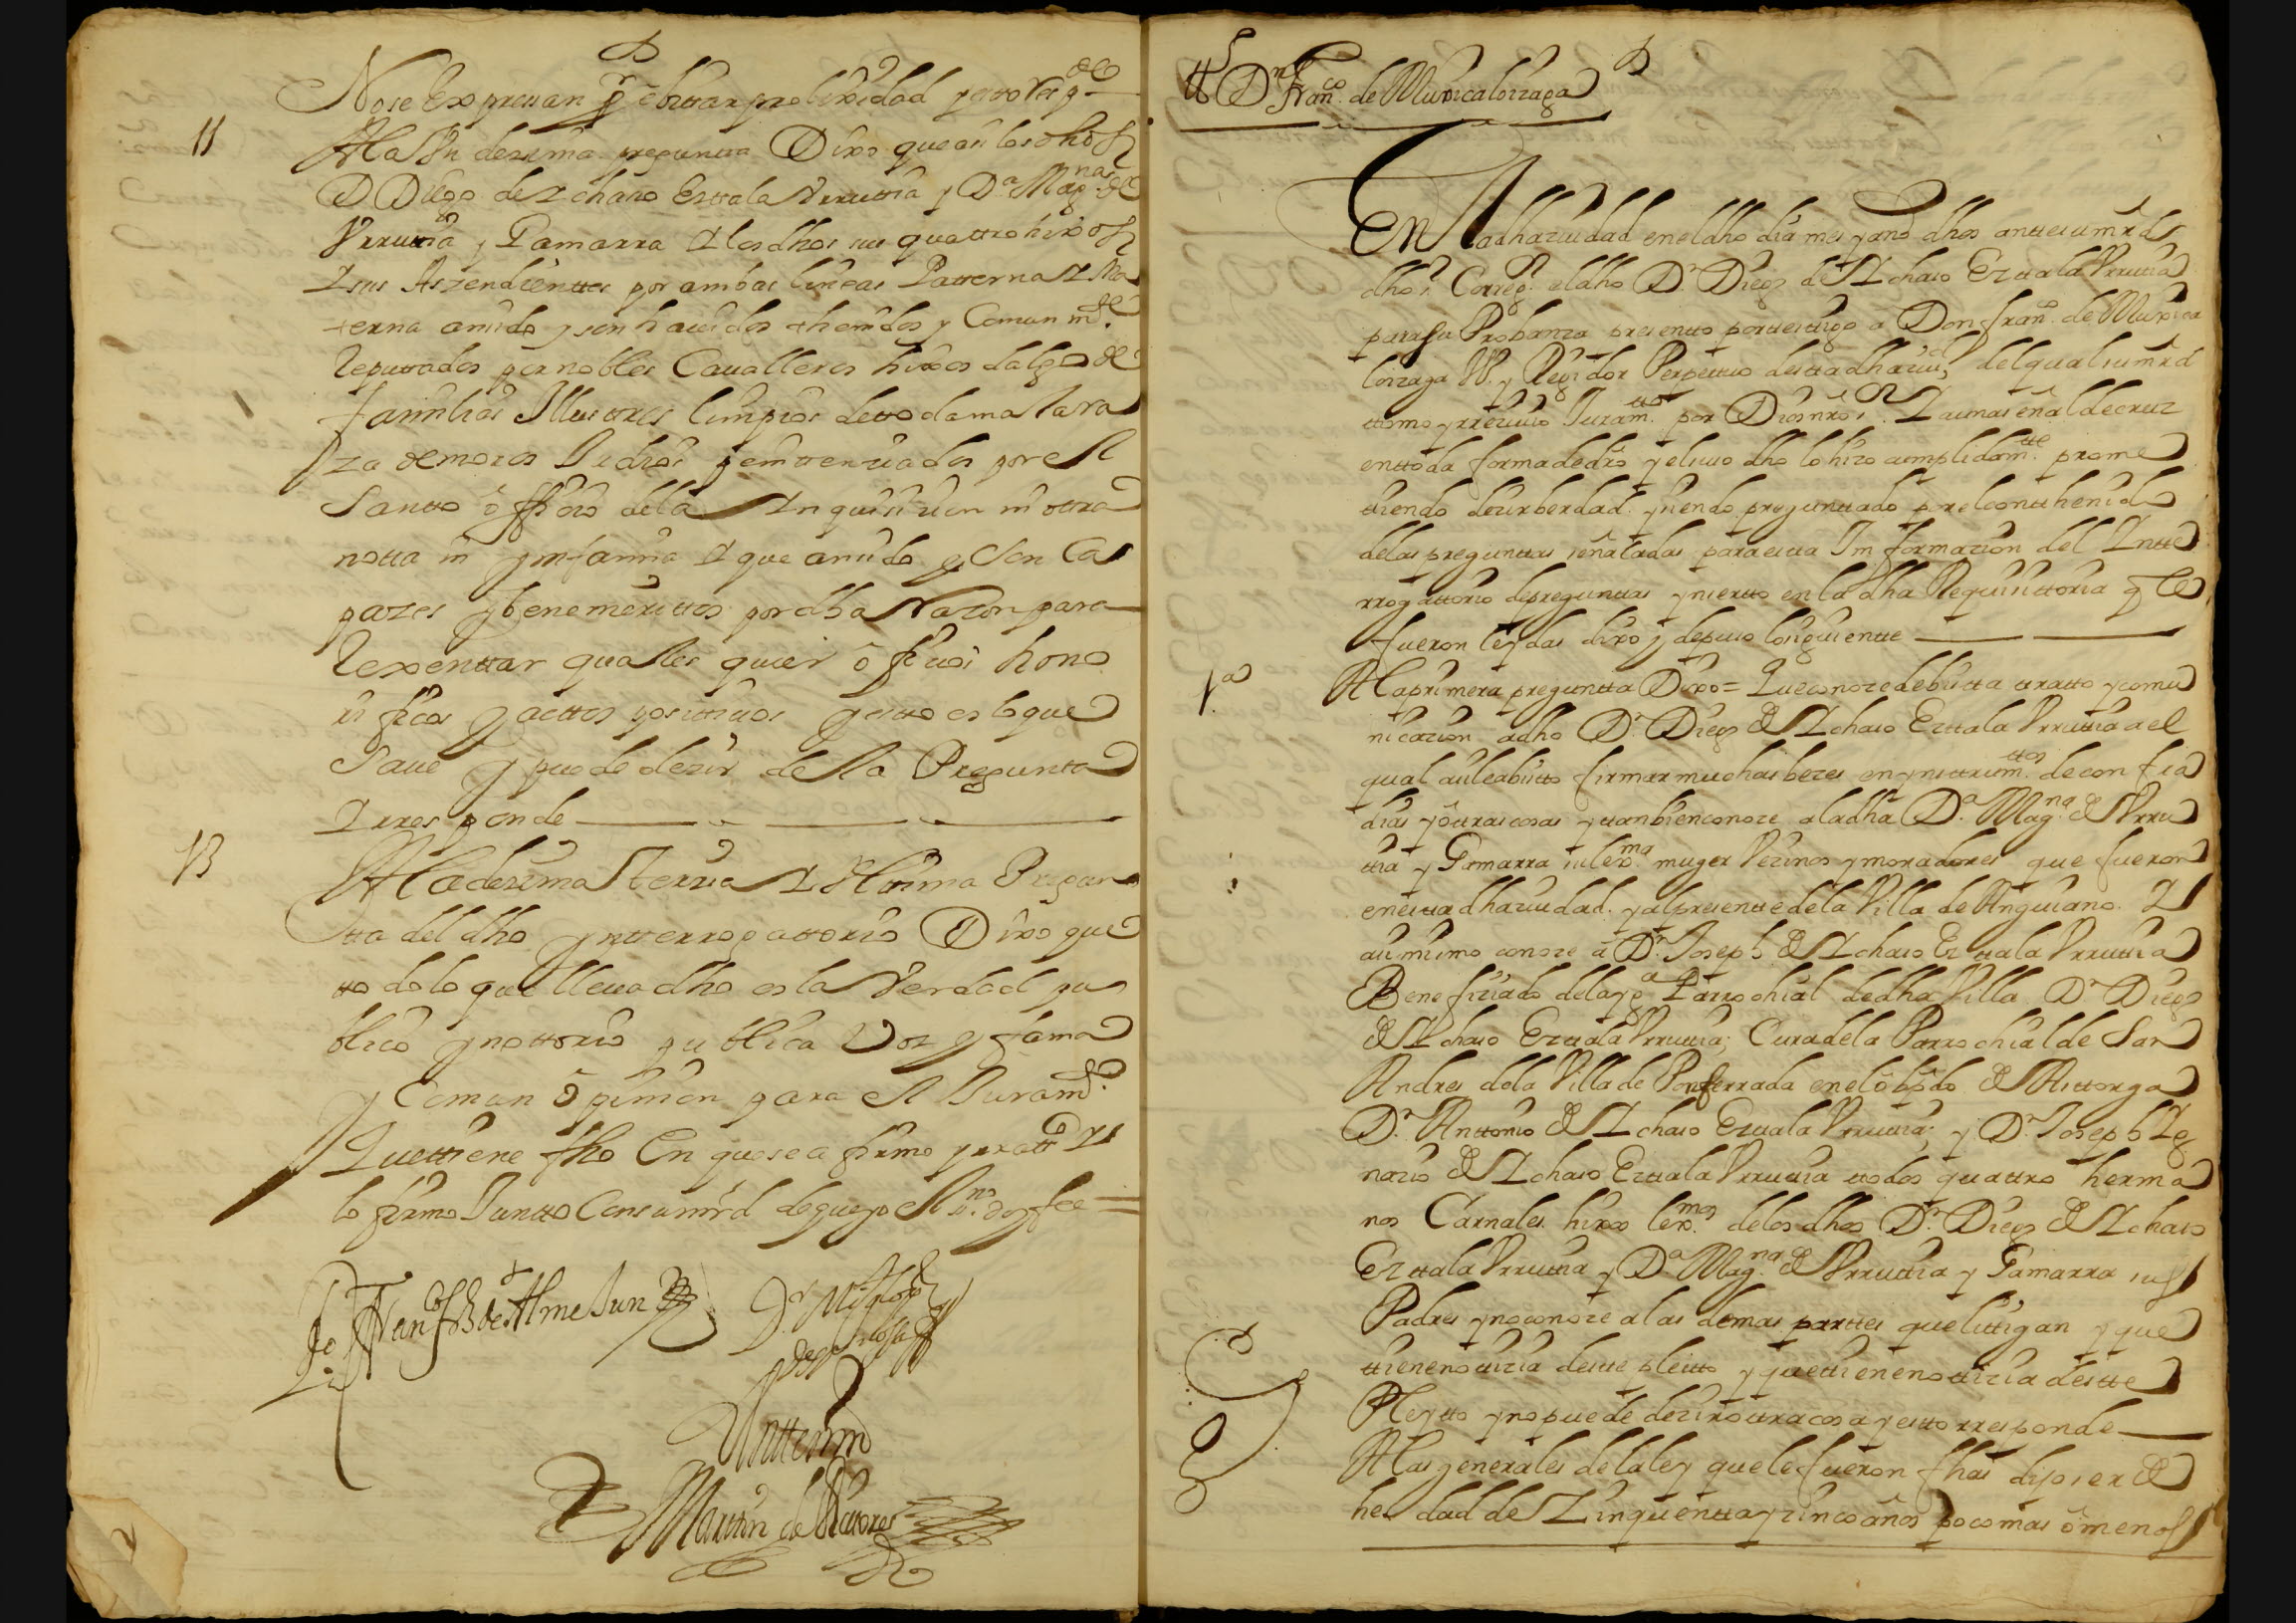 No se expresan por ebittar prolixidad y esto rresp.de
11
A la un dezima pregunta Dixo que asi los dhos
D Diego de Ichaso Ezttala Urruttia y Da Magna de
Urruttia y Gamarra I los dhos sus quattro hixos
I sus Aszendienttes por ambas lineas Patterna I Ma
terna an sido y son hauidos thenidos y Comun mte
Reputtados por nobles Caualleros hixos dalgo de
familias Illusttres limpios de ttoda mala ra
za de moros Judios penittenziados por el
Santto offizio de la Inquisizion ni ottra
notta ni ynfamia I que an sido y son Ca
pazes y benemerittos por dha Razon para
exersittar qualesquier offizios hono
rificos y acttos posittiuos y estto es lo que
Saue y puede dezir de la Pregunta
I rresponde
13
A la dezima terzia I Ultima Pregun
tta del dho ynterrogattorio Dixo que
ttodo lo que lleua dho es la Verdad pu
blico y nottorio publica Voz y fama
y Comun opinion para el Juramto
Que ttiene fho En que se afirmo y rrattco I
lo firmo Juntto Con su mrd de que yo el sno doy fee
Antte mi
Marttin de
tt5 Dn Franco de Muxica loizaga
En la dha ziudad en el dho dia mes y año dhos antte su mrd
dho sr Corregr el dho Dn Diego de Ichaso Ezttala Urruttia
para su Probanza presentto por testtigo a Don Franco de Muxica
loizaga Vo y Regidor Perpettuo destta dha ziud del qual su mrd
ttomo y rreziuio Juramtto por Dios nro sr I a una señal de cruz
en ttoda forma de dro y el suso dho lo hizo cumplidamtte prome
ttiendo dezir berdad y siendo preguntado por el contthenido
de las pregunttas señaladas para estta Informazion del Intte
rrogattorio de pregunttas ynsertto en la dha Requisittoria que le
fueron leydas dixo y depuso lo siguientte
1a
A la primera preguntta Dixo = Que conoze de bistta tratto y comu
nicazion a dho Dn Diego de Ichaso Ezttala Urruttia a el
qual a uisto firmar muchas bezes en ynstrumttos de con fia
dias y ottras cosas y ttambien conoze a la dha Da Magna de Urru
ttia y Gamarra su lexma muger Vezinos y moradores que fueron
en estta dha ziudad y al presentte de la Villa de Anguiano I
asi mismo conoze a Dn Joseph de Ichaso Ezttala Urruttia
Benefiziado de la yga Parrochial de dha Villa Dn Diego
de Ichaso Ezttala Urruttia; Cura de la Parrochial de San
Andres de la Villa de Ponferrada en el obpdo de Asttorga
Dn Anttonio de Ichaso Ezttala Urruttia; y Dn Joseph Ig
nazio de Ichaso Ezttala Urruttia ttodos quattro herma
nos Carnales hixos lexmos de los dhos Dn Diego de Ichaso
Ezttala Urruttia y Da Magna de Urruttia y Gamarra sus
Padres y no conoze a las demas parttes que littigan y que
ttiene nottizia destte pleitto y que ttiene nottizia destte
Pleytto y no puede dezir ottra cosa y estto rresponde
A las generales de la ley que le fueron fhas dijo ser de
hedad de Zinquentta y zinco años poco mas o menos